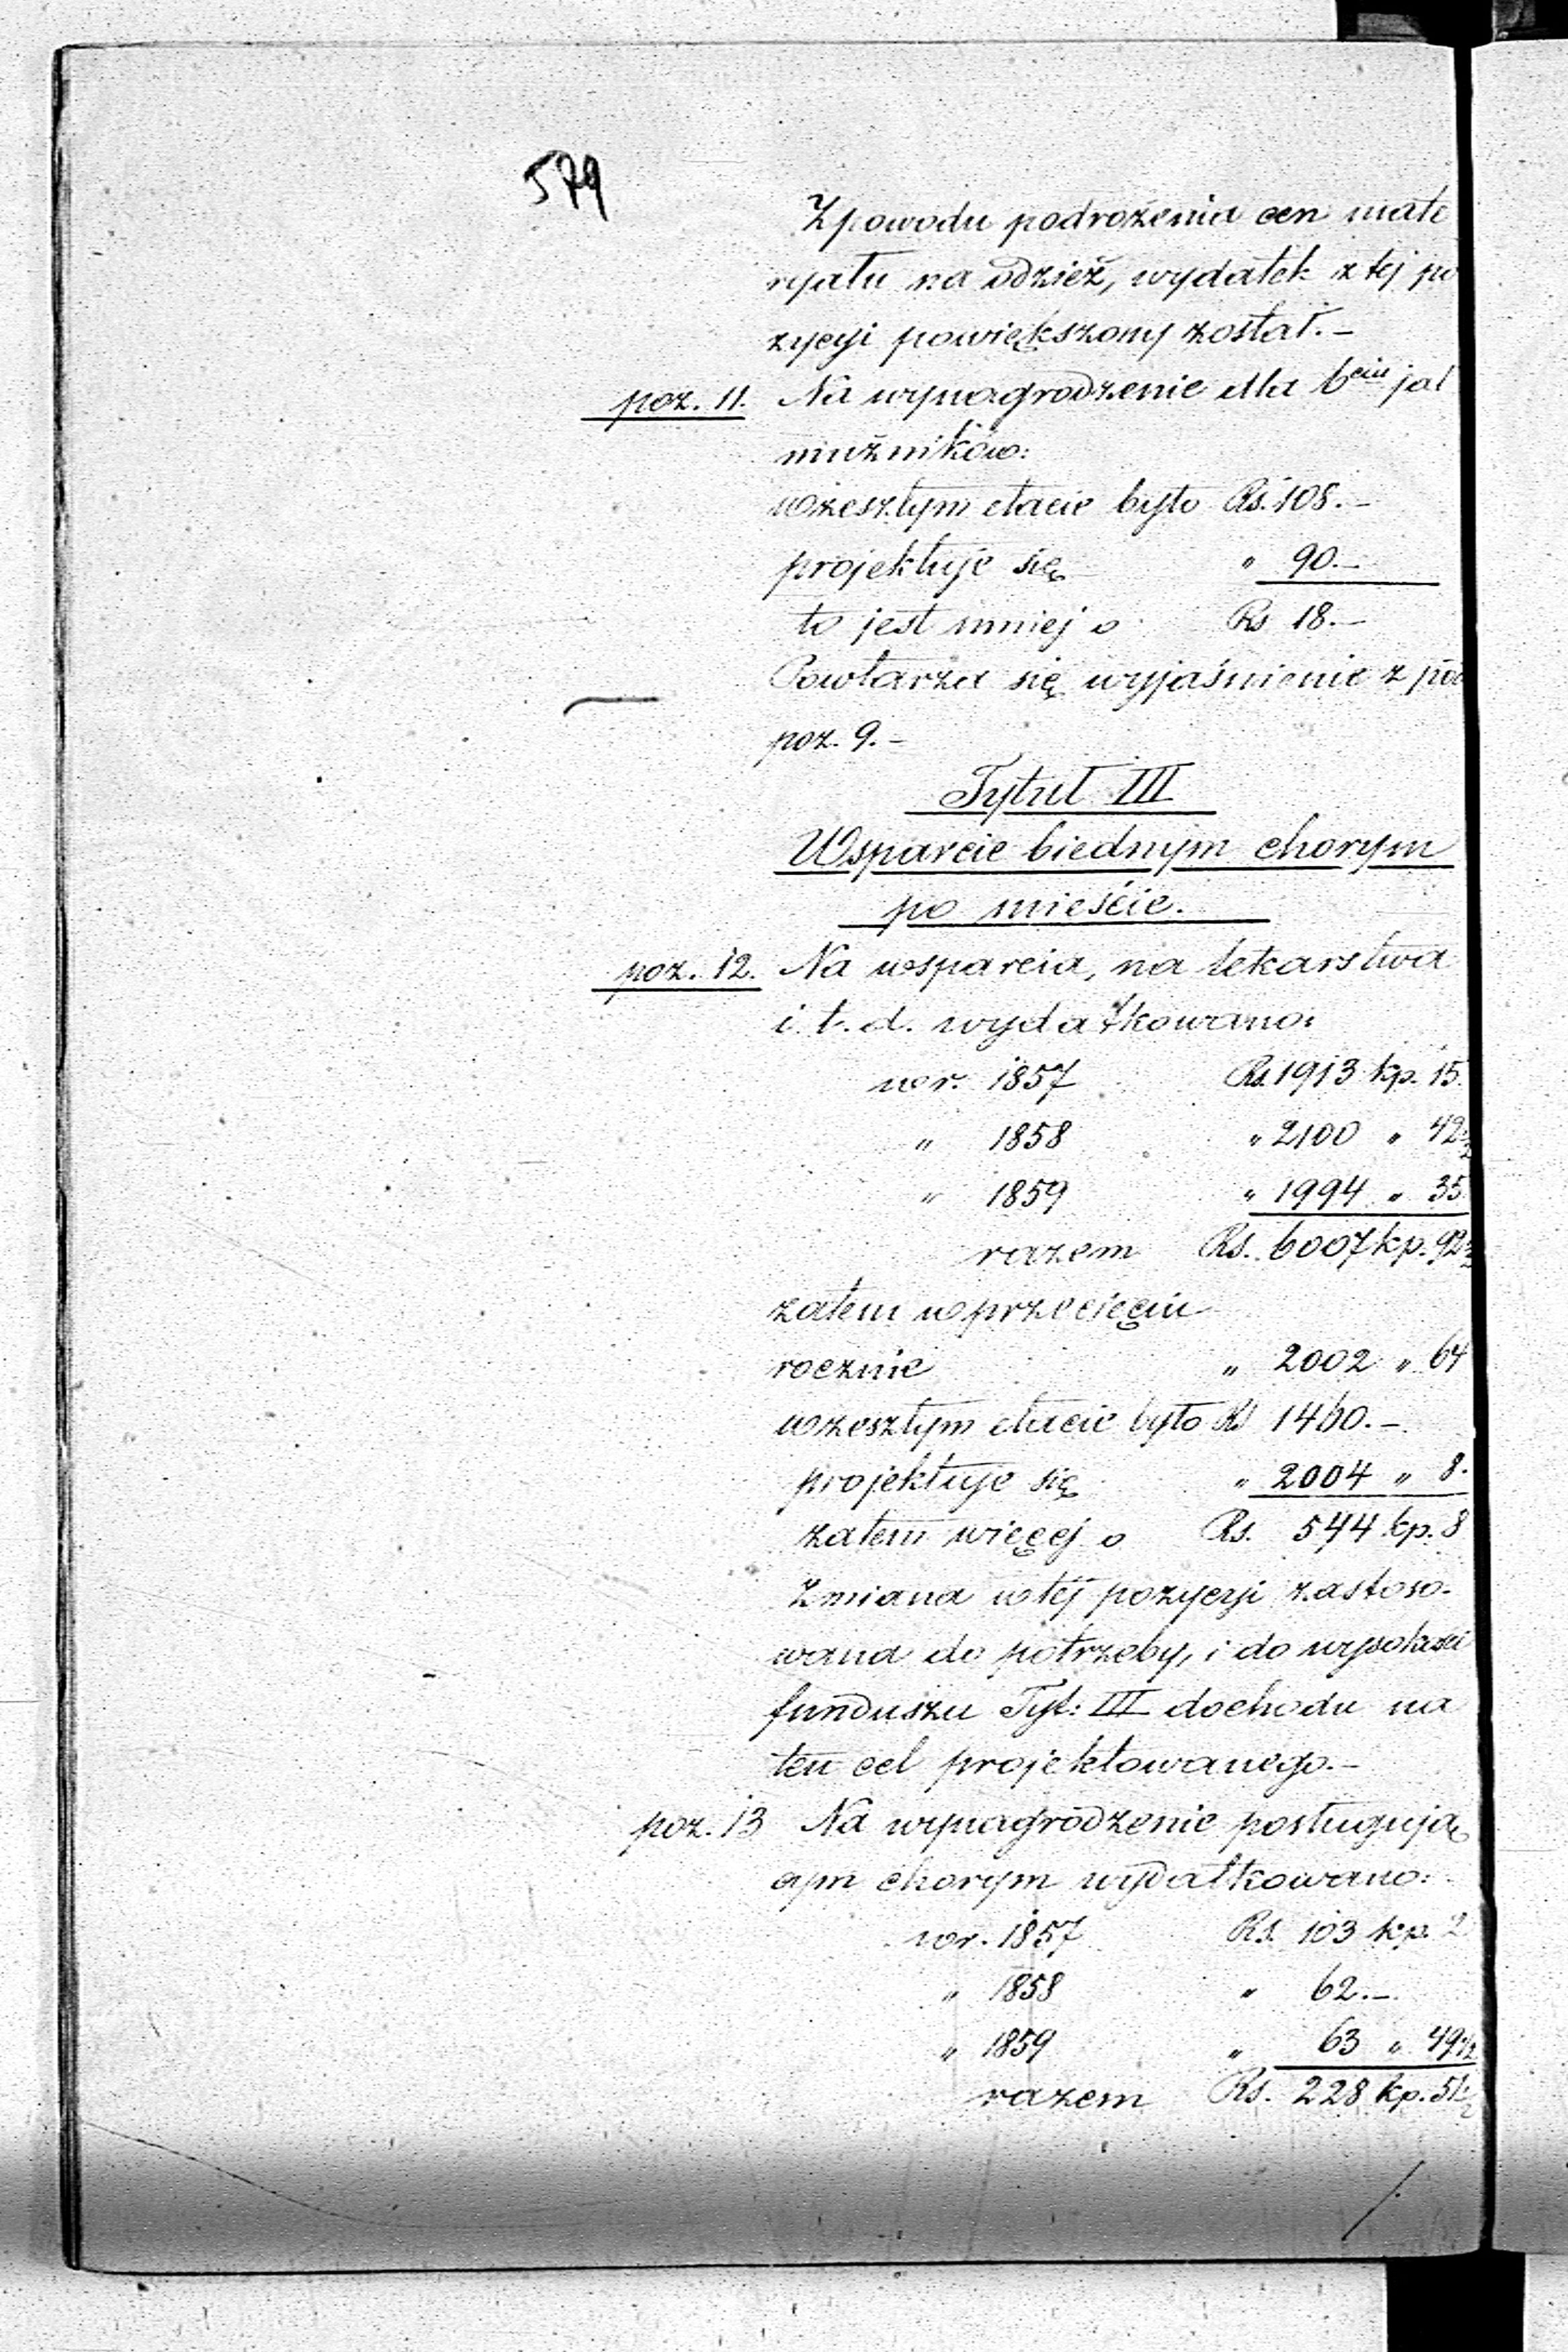 579
Z powodu podrożenia cen mate
ryału na odzież, wydatek z tej po
zycyi powiększony został. –
poz. 11. Na wynagrodzenie dla 6ciu jał
mużników:
w zeszłym etacie było Rs. 108. –
projektuje się " 90. –
to jest mniej o Rs 18. –
Powtarza się wyjaśnienie z pod
poz. 9. –
Tytuł III
Wsparcie biednym chorym
po mieście.
poz. 12. Na wsparcia, na lekarstwa
i. t. d. wydatkowano:
w r. 1857 Rs. 1913 kp. 15.
" 1858 " 2100 " 42 1/2
" 1859 " 1994 " 35
razem Rs. 6007 kp. 92 1/2
zatem w przecięciu
rocznie " 2002 " 64
w zeszłym etacie było Rs 1460. –
projektuje się " 2004 " 8.
zatem więcej o Rs. 544 kp. 8
Zmiana w tej pozycyi zastoso-
wana do potrzeby, i do wysokości
funduszu Tyt: III dochodu na
ten cel projektowanego. –
poz. 13 Na wynagrodzenie posługują
cym chorym wydatkowano:
w r. 1857 Rs. 103 kp. 2
" 1858 " 62. –
" 1859 " 63 " 49 1/2
razem Rs. 228 kp. 51 1/2